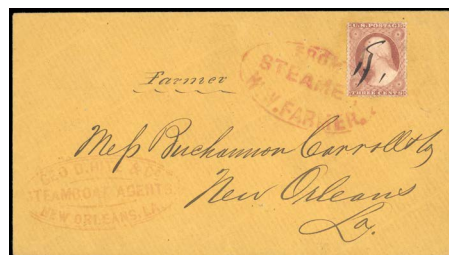 U.S. POSTAGE
THREE CENTS
STEAMER
W.W. FARMER.
Farmer
Mess Buchannon Carroll & Co
New Orleans
La.
STEAMBOAT AGENTS
NEW ORLEANS, LA.